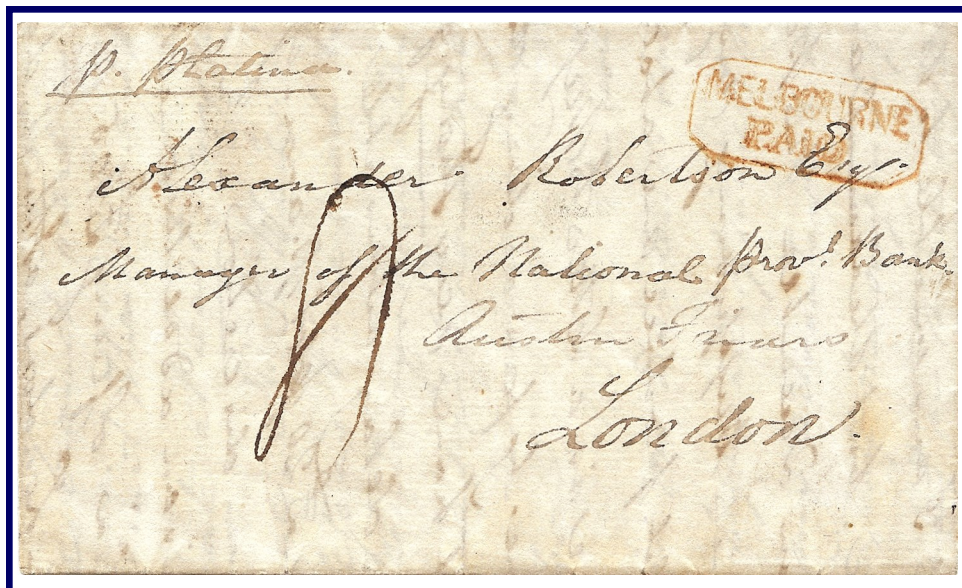 p. Platina.
MELBOURNE
PAID
Alexander Robertson Esqr.
Manager of the National Provl. Bank.
Austin Friars
London.